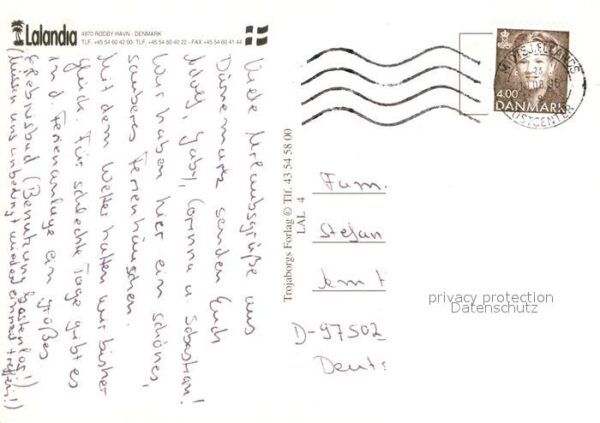 Lalandia
4970 RØDBY HAVN · DENMARK
TLF. +45 54 60 42 00 · TLF. +45 54 60 40 22 · FAX +45 54 60 41 44
Viele Urlaubsgrüße aus
Dänemark senden Euch
Gaby, Corinna u. Sebastian!
Wir haben hier ein schönes,
sauberes Ferienhäuschen.
Mit dem Wetter hatten wir bisher
Glück. Für schlechte Tage gibt es
in d. Ferienanlage ein großes
Erlebnisbad (Benutzung kostenlos!)
(Müssen uns unbedingt wieder einmal treffen!!)
Trojaborgs Forlag © Tlf. 43 54 58 00
LAL 4
4.00
DANMARK
POSTCENTER
Fam.
Stefan
D-97502
Deuts
privacy protection
Datenschutz